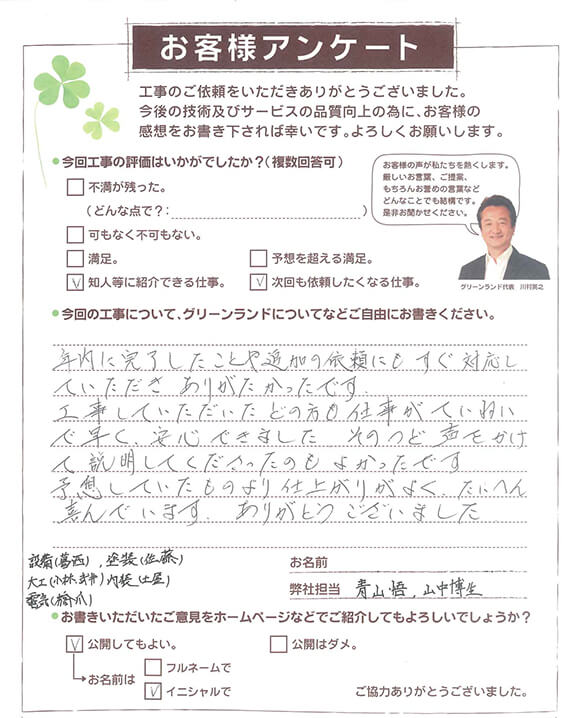 お客様アンケート
工事のご依頼をいただきありがとうございました。
今後の技術及びサービスの品質向上の為に、お客様の
感想をお書き下されば幸いです。よろしくお願いします。
●今回工事の評価はいかがでしたか？（複数回答可）
お客様の声が私たちを熱くします。
厳しいお言葉、ご提案、
もちろんお誉めの言葉など
どんなことでも結構です。
是非お聞かせください。
グリーンランド代表　川村英之
□ 不満が残った。
（どんな点で？：　）
□ 可もなく不可もない。
□ 満足。　□ 予想を超える満足。
☑ 知人等に紹介できる仕事。　☑ 次回も依頼したくなる仕事。
●今回の工事について、グリーンランドについてなどご自由にお書きください。
年内に完了したことや追加の依頼にもすぐ対応し
ていただき ありがたかったです.
工事していただいた どの方も 仕事が ていねい
で早く、安心できました そのつど 声をかけ
て 説明してくださったのも よかったです
予想していたものより 仕上がりがよく、たいへん
喜んでいます. ありがとう ございました
設備(葛西), 塗装(佐藤)
大工(小林、武井) 内装(土屋)
電気(橋爪)
お名前
弊社担当　青山悟, 山中博生
●お書きいただいたご意見をホームページなどでご紹介してもよろしいでしょうか？
☑ 公開してもよい。　□ 公開はダメ。
お名前は　□ フルネームで
☑ イニシャルで
ご協力ありがとうございました。